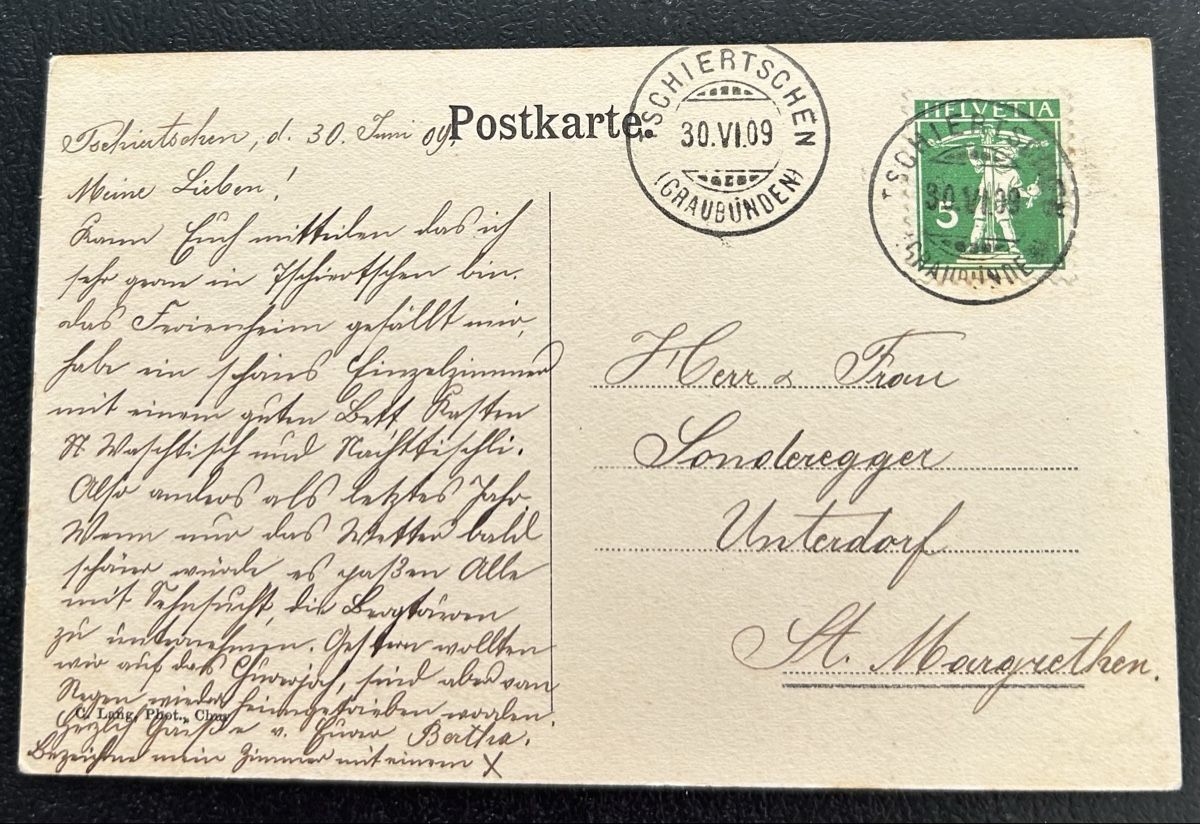 Postkarte.
TSCHIERTSCHEN
30.VI.09
(GRAUBÜNDEN)
HELVETIA
5
TSCHIERTSCHEN
30.VI.09
(GRAUBÜNDEN)
Tschiertschen, d. 30. Juni 09.
Meine Lieben!
Kann Euch mitteilen das ich
sehr gern in Tschiertschen bin.
das Ferienheim gefällt mir,
habe ein schöns Einzelzimmer
mit einem guten Bett Kasten
Waschtisch und Nachttischli.
Also anders als letztes Jahr.
Wenn nur das Wetter bald
schöner würde es paßen Alle
mit Sehnsucht, die Bergtouren
zu unternehmen. Gestern wollten
wir auf das Churerjoch, sind aber vom
Regen wieder heimgetrieben worden.
Herzlich Grüße v. Eurer Bertha.
Bezeichne mein Zimmer mit einem X
C. Lang, Phot., Chur
Herr & Frau
Sonderegger
Unterdorf
St. Margrethen.